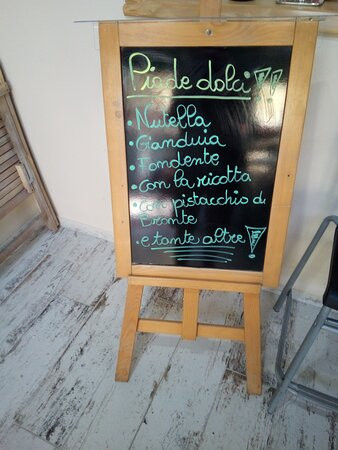 Piade dolci!!
• Nutella
• Gianduia
• Fondente
• con la ricotta
• con pistacchio di
Bronte
• e tante altre!